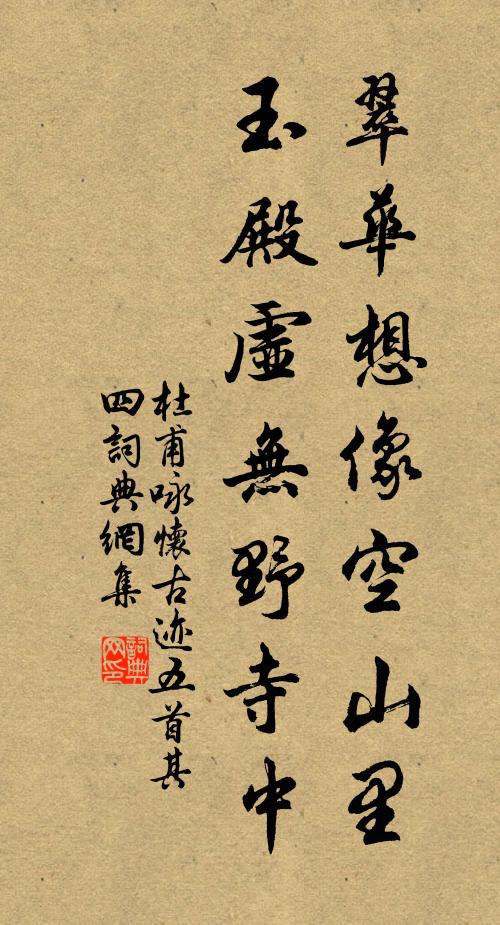 翠華想像空山里
玉殿虛無野寺中
杜甫咏懷古迹五首其
四詞典網集
詞典
网印